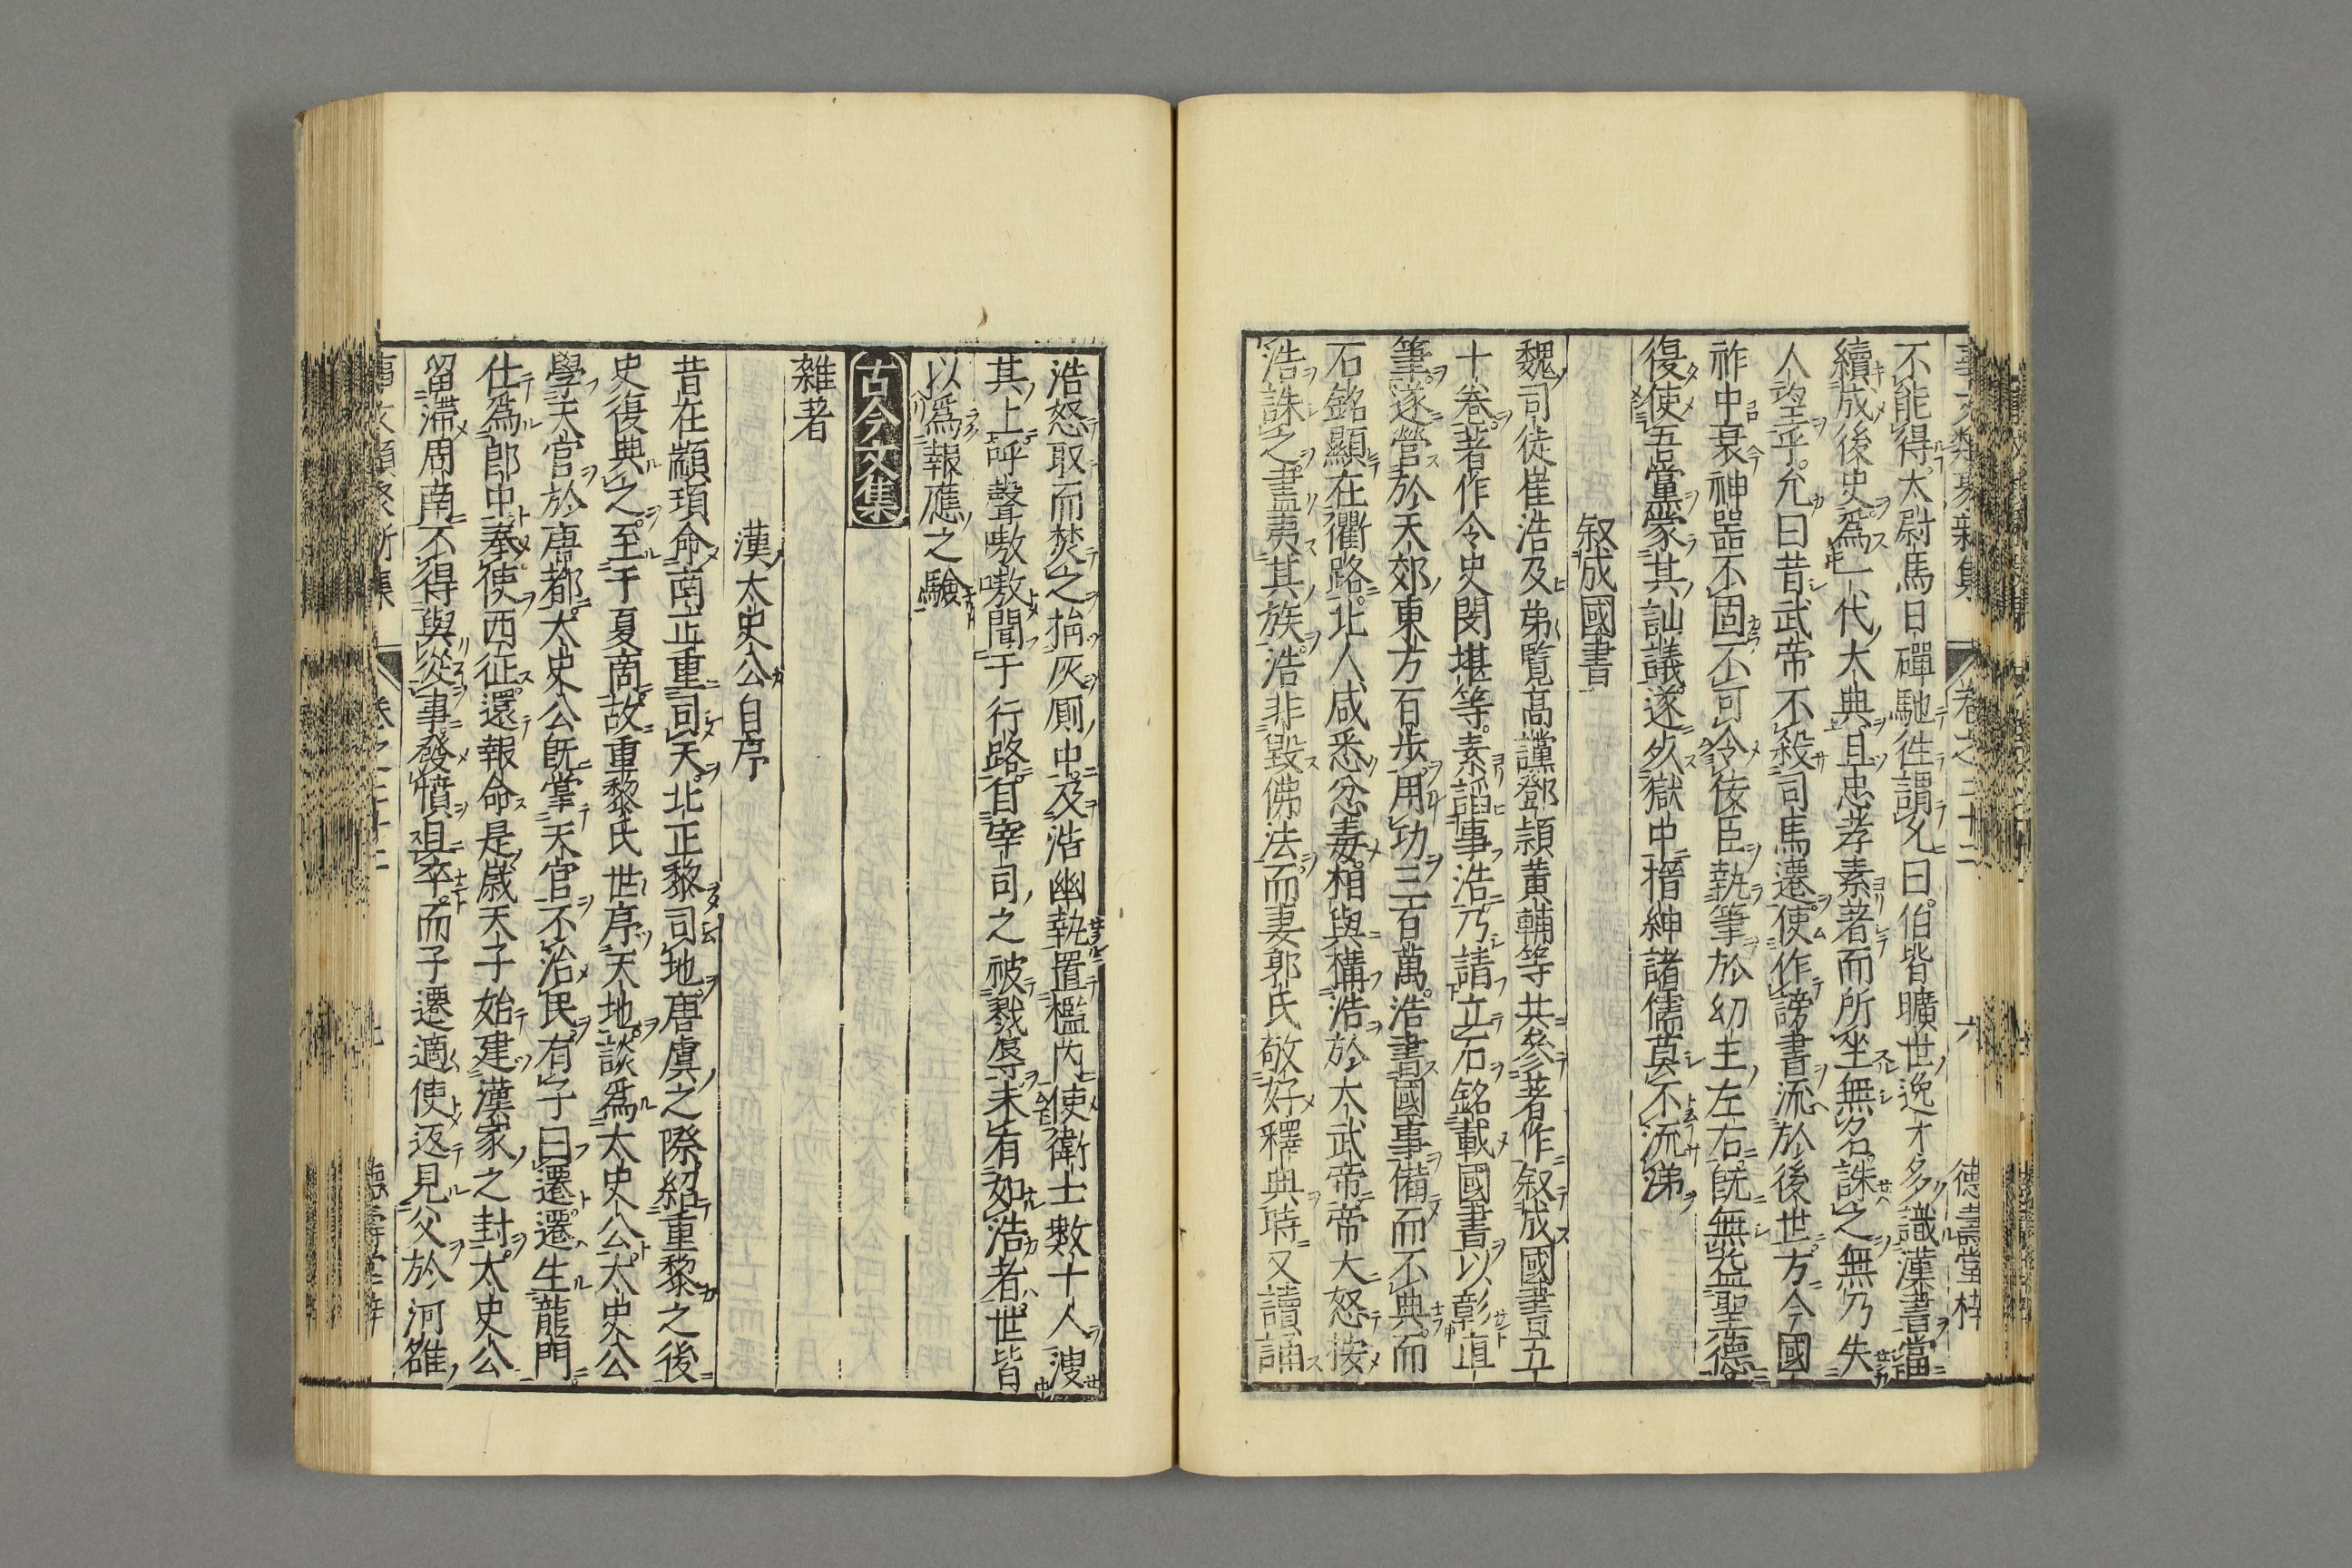 事文類聚新集 卷之三十二 六 德壽堂梓
不能得太尉馬日磾馳徃謂允曰伯喈曠世逸才多識漢書當
續成後史爲一代大典且忠孝素著而所坐無名誅之無乃失
人望乎允曰昔武帝不殺司馬遷使作謗書流於後世方今國
祚中衰神噐不固不可令佞臣執筆於幼主左右旣無益聖德
復使吾黨蒙其訕議遂　獄中搢紳諸儒莫不流涕
叙成國書
魏司徒崔浩及弟覧髙讜鄧頴黄輔等共參著作叙成國書五
十卷著作令史閔堪等素謟事浩乃請立石銘載國書以彰直
筆遂營於天郊東方百步用功三百萬浩書國事備而不典而
石銘顯在衢路北人咸悉忿毒相與構浩於太武帝帝大怒按
浩誅之盡夷其族浩非毀佛法而妻郭氏敬好釋典時又讀誦
浩怒取而焚之捐灰厠中及浩幽執置檻內使衛士數十人溲
其上呼聲嗷嗷聞于行路自宰司之被戮辱未有如浩者世皆
以爲報應之驗
古今文集
雜著
漢太史公自序
昔在顓頊命南正重司天北正黎司地唐虞之際紹重黎之後
史復典之至于夏商故重黎氏世序天地談爲太史公太史公
學天官於唐都太史公旣掌天官不治民有子曰遷遷生龍門
仕爲郎中奉使西征還報命是歲天子始建漢家之封太史公
留滯周南不得與從事發憤且卒而子遷適使返見父於河雒